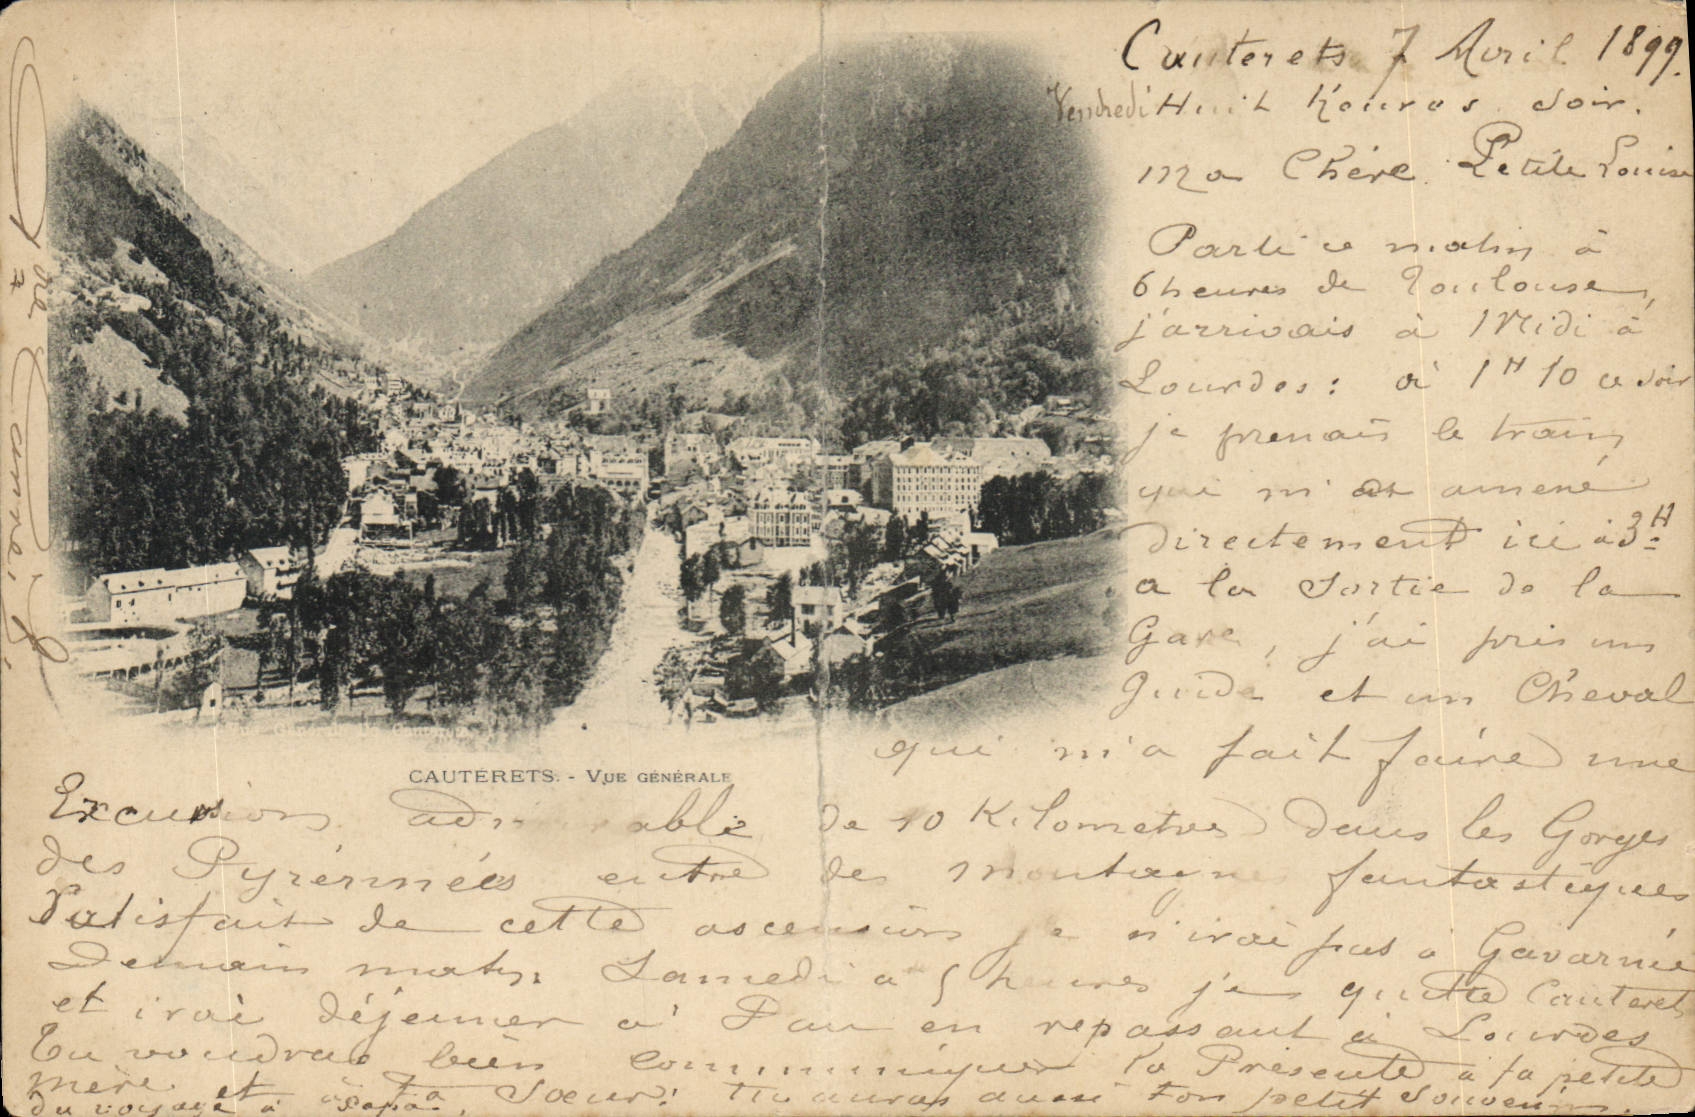 Cauterets 7 Avril 1899.
Vendredi Huit heures soir.
Ma Chère Petite Louise
Parti ce matin à
6 heures de Toulouse,
j'arrivais à 1 Midi à
Lourdes : à 1H 10 ce soir
je prenais le train
qui m'a amené
directement ici à 3H
a la Sortie de la
Gare, j'ai pris un
guide et un Cheval
qui m'a fait faire une
CAUTERETS. - VUE GÉNÉRALE
Excursion admirable de 10 Kilometres dans les Gorges
des Pyrérinnées entre des montagnes fantastiques
Satisfait de cette ascension je n'irai pas a Gavarnie
Demain matin Samedi a 5 heures je quitte Cauterets
et irai déjeuner à Pau en repassant à Lourdes
Tu voudras bien communiquer la Présente a ta petite
mère et à ta Soeur : tu auras aussi ton petit Souvenir
du voyage à